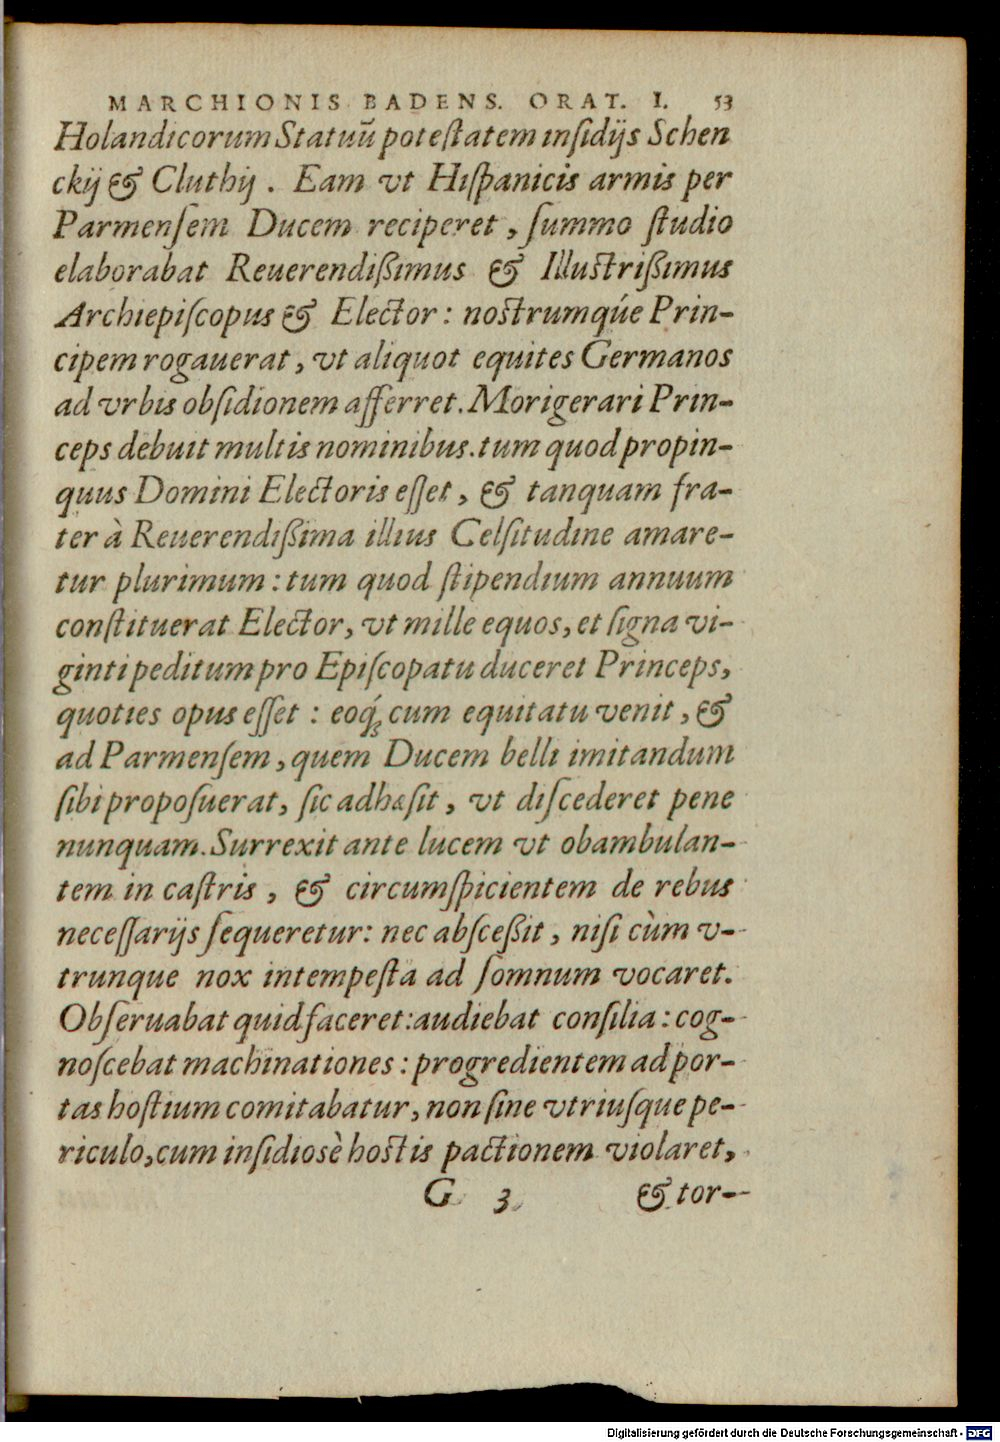 MARCHIONIS BADENS. ORAT. I. 53
Holandicorum Statuũ potestatem insidijs Schen
ckij & Cluthij. Eam vt Hispanicis armis per
Parmensem Ducem reciperet, summo studio
elaborabat Reuerendißimus & Illustrißimus
Archiepiscopus & Elector: nostrumqúe Prin-
cipem rogauerat, vt aliquot equites Germanos
ad vrbis obsidionem afferret. Morigerari Prin-
ceps debuit multis nominibus. tum quod propin-
quus Domini Electoris esset, & tanquam fra-
ter à Reuerendißima illius Celsitudine amare-
tur plurimum: tum quod stipendium annuum
constituerat Elector, vt mille equos, et signa vi-
ginti peditum pro Episcopatu duceret Princeps,
quoties opus esset: eoq́ꝫ cum equitatu venit, &
ad Parmensem, quem Ducem belli imitandum
sibi proposuerat, sic adhæsit, vt discederet pene
nunquam. Surrexit ante lucem vt obambulan-
tem in castris, & circumspicientem de rebus
necessarijs sequeretur: nec absceßit, nisi cùm v-
trunque nox intempesta ad somnum vocaret.
Obseruabat quid faceret: audiebat consilia: cog-
noscebat machinationes: progredientem ad por-
tas hostium comitabatur, non sine vtriusque pe-
riculo, cum insidiosè hostis pactionem violaret,
G 3 & tor-
Digitalisierung gefördert durch die Deutsche Forschungsgemeinschaft - DFG